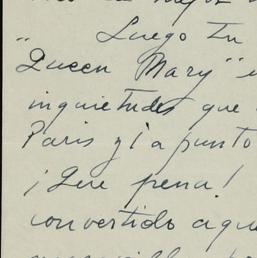 Luego tu
"Queen Mary"
inquietudes que
Paris y ¡a punto
¡Que pena!
convertido aqu